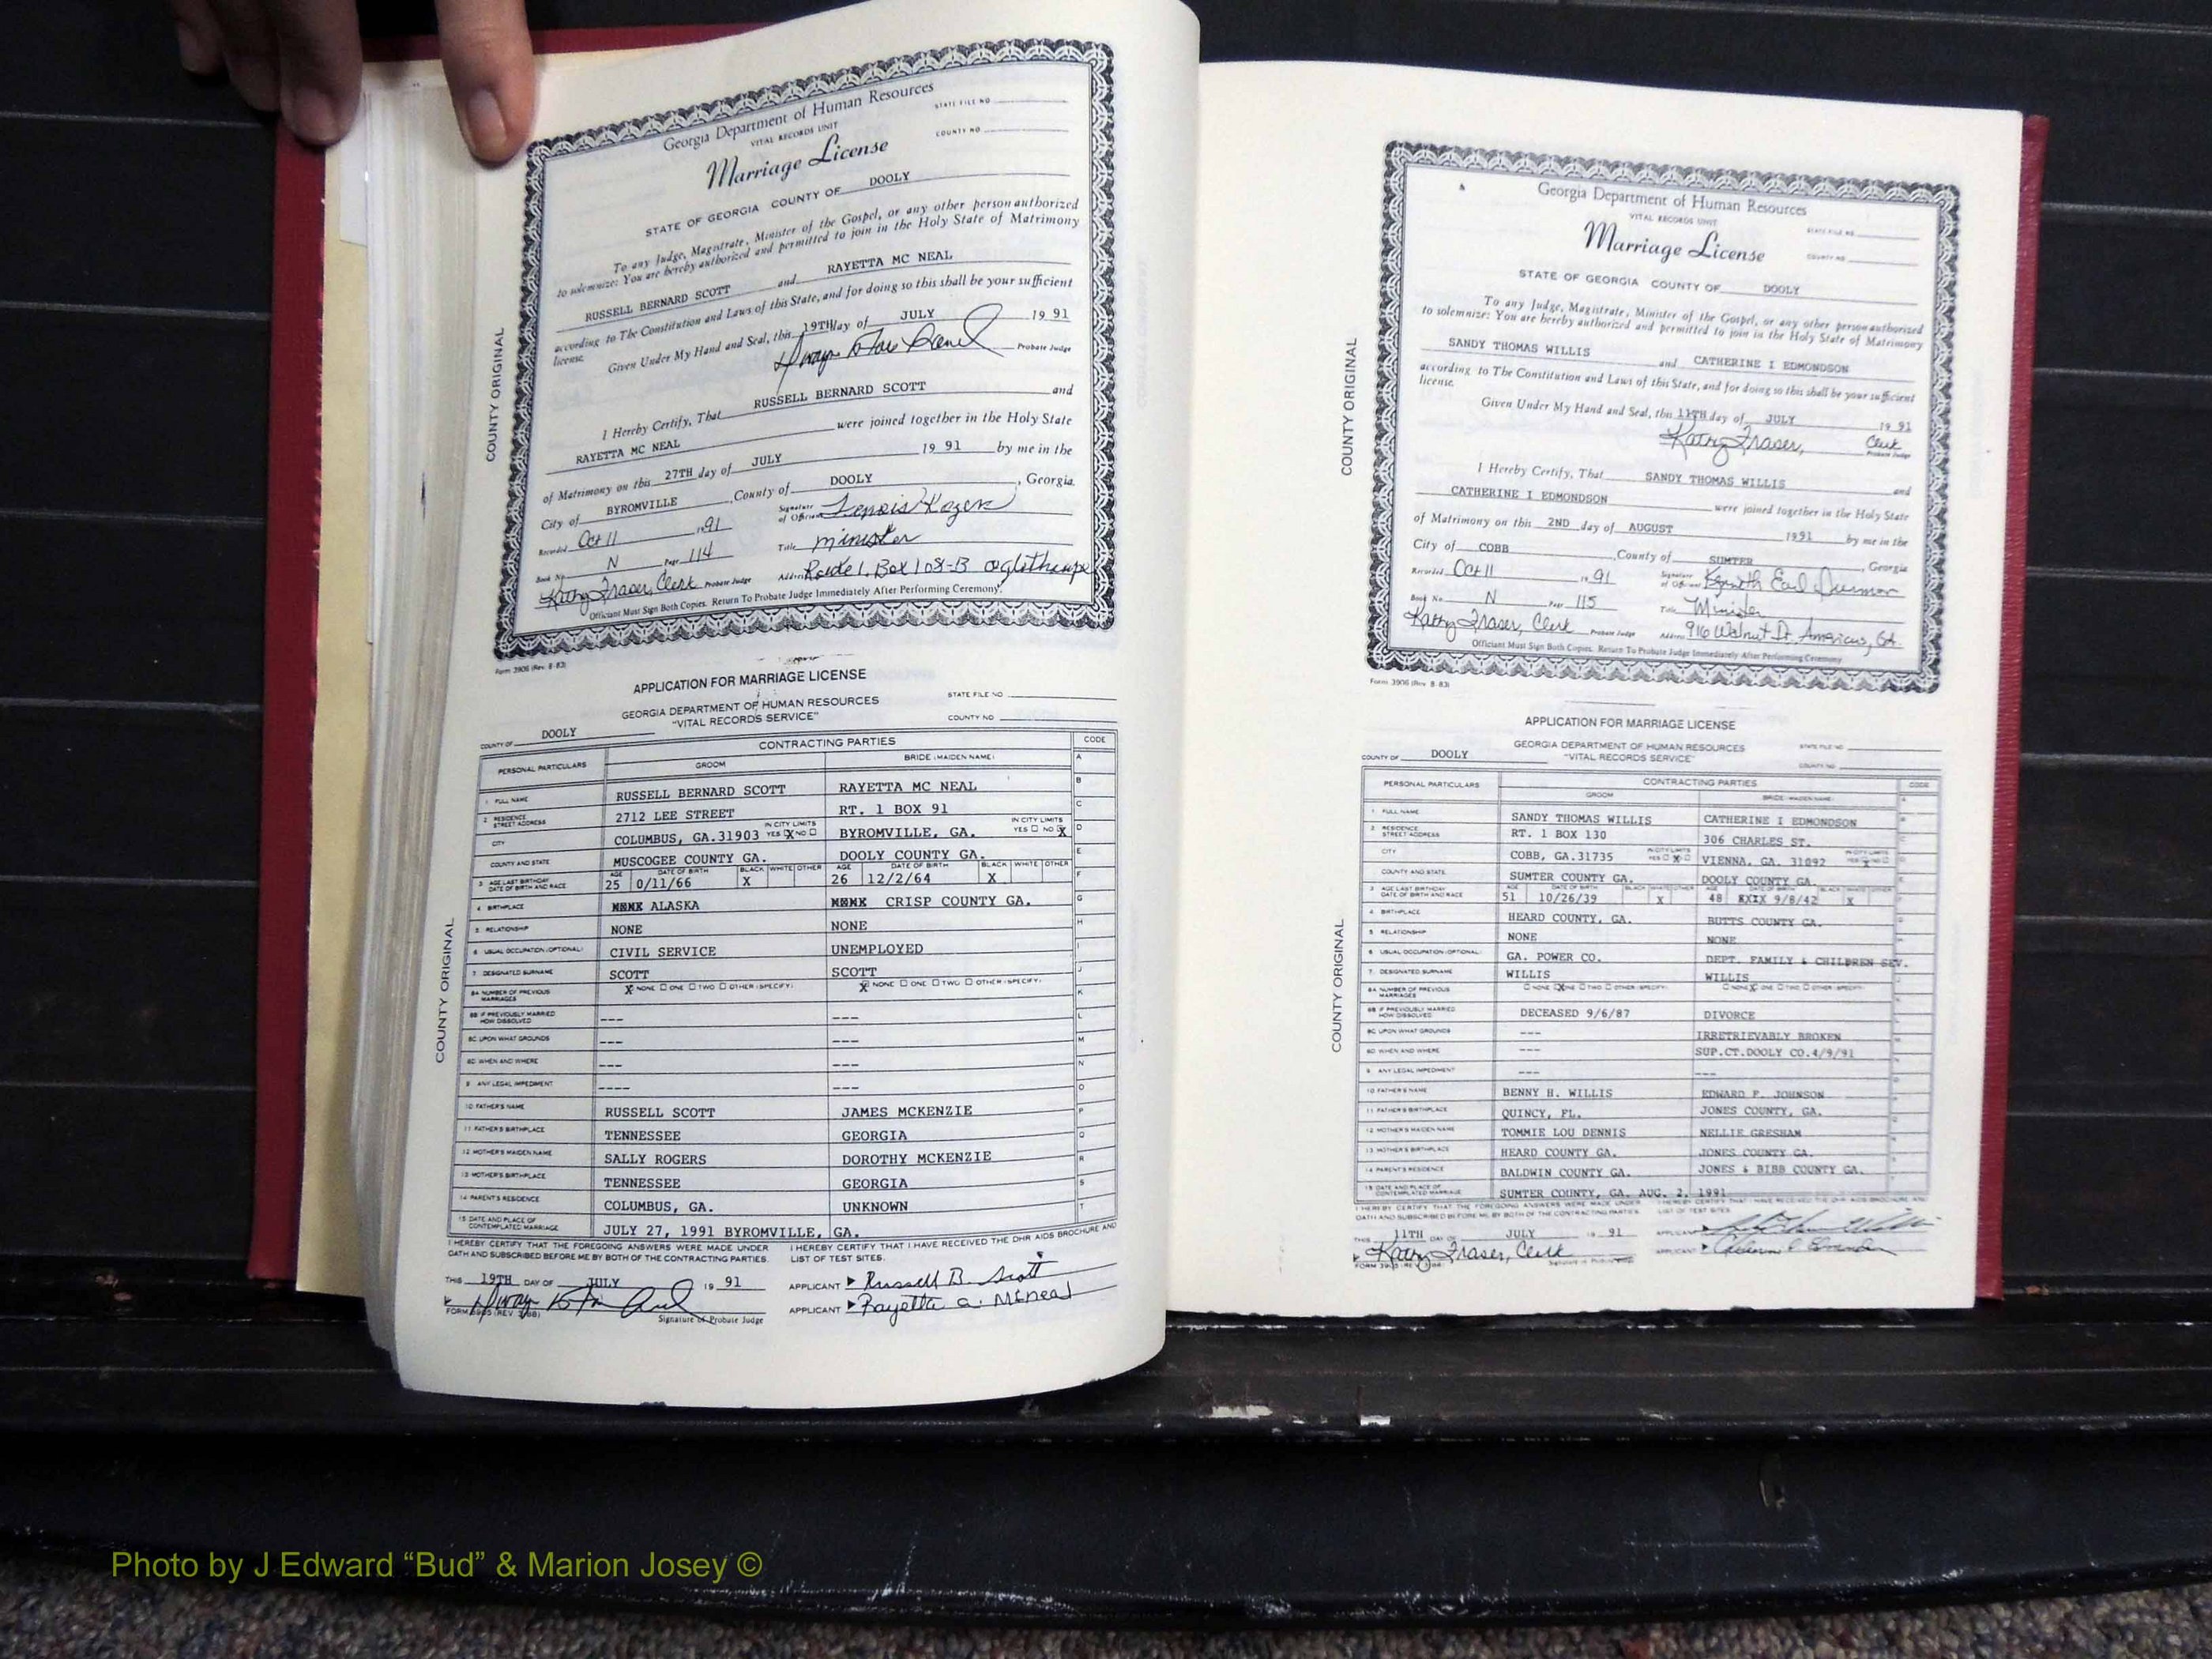 Georgia Department of Human Resources
VITAL RECORDS UNIT
STATE FILE NO.
COUNTY NO.
Marriage License
STATE OF GEORGIA COUNTY OF DOOLY
To any Judge, Magistrate, Minister of the Gospel, or any other person authorized
to solemnize: You are hereby authorized and permitted to join in the Holy State of Matrimony
RUSSELL BERNARD SCOTT and RAYETTA MC NEAL
according to The Constitution and Laws of this State, and for doing so this shall be your sufficient
license.
Given Under My Hand and Seal, this 19TH day of JULY 19 91
Probate Judge
I Hereby Certify, That RUSSELL BERNARD SCOTT and
RAYETTA MC NEAL were joined together in the Holy State
of Matrimony on this 27TH day of JULY 19 91 by me in the
City of BYROMVILLE, County of DOOLY, Georgia.
Recorded Oct 11 19 91 Signature of Official
Book No. N Page 114 Title minister
Kathy Fraser, Clerk Probate Judge Address Route 1, Box 108-B Oglethorpe
Officiant Must Sign Both Copies. Return To Probate Judge Immediately After Performing Ceremony.
COUNTY ORIGINAL
Form 3906 (Rev. 8-83)
APPLICATION FOR MARRIAGE LICENSE
GEORGIA DEPARTMENT OF HUMAN RESOURCES
"VITAL RECORDS SERVICE"
STATE FILE NO
COUNTY NO
COUNTY OF DOOLY
PERSONAL PARTICULARS CONTRACTING PARTIES CODE
GROOM BRIDE (MAIDEN NAME)
1 FULL NAME RUSSELL BERNARD SCOTT RAYETTA MC NEAL
2 RESIDENCE STREET ADDRESS 2712 LEE STREET RT. 1 BOX 91
CITY COLUMBUS, GA.31903 IN CITY LIMITS YES X NO BYROMVILLE, GA. IN CITY LIMITS YES NO X
COUNTY AND STATE MUSCOGEE COUNTY GA. DOOLY COUNTY GA.
3 AGE LAST BIRTHDAY DATE OF BIRTH AND RACE AGE 25 DATE OF BIRTH 0/11/66 BLACK X WHITE OTHER AGE 26 DATE OF BIRTH 12/2/64 BLACK X WHITE OTHER
4 BIRTHPLACE ALASKA CRISP COUNTY GA.
5 RELATIONSHIP NONE NONE
6 USUAL OCCUPATION (OPTIONAL) CIVIL SERVICE UNEMPLOYED
7 DESIGNATED SURNAME SCOTT SCOTT
8A NUMBER OF PREVIOUS MARRIAGES X NONE ONE TWO OTHER (SPECIFY) X NONE ONE TWO OTHER (SPECIFY)
8B IF PREVIOUSLY MARRIED HOW DISSOLVED --- ---
8C UPON WHAT GROUNDS --- ---
8D WHEN AND WHERE --- ---
9 ANY LEGAL IMPEDIMENT ---- ---
10 FATHER'S NAME RUSSELL SCOTT JAMES MCKENZIE
11 FATHER'S BIRTHPLACE TENNESSEE GEORGIA
12 MOTHER'S MAIDEN NAME SALLY ROGERS DOROTHY MCKENZIE
13 MOTHER'S BIRTHPLACE TENNESSEE GEORGIA
14 PARENT'S RESIDENCE COLUMBUS, GA. UNKNOWN
15 DATE AND PLACE OF CONTEMPLATED MARRIAGE JULY 27, 1991 BYROMVILLE, GA.
A
B
C
D
E
F
G
H
I
J
K
L
M
N
O
P
Q
R
S
T
I HEREBY CERTIFY THAT THE FOREGOING ANSWERS WERE MADE UNDER
OATH AND SUBSCRIBED BEFORE ME BY BOTH OF THE CONTRACTING PARTIES.
I HEREBY CERTIFY THAT I HAVE RECEIVED THE DHR AIDS BROCHURE AND
LIST OF TEST SITES.
THIS 19TH DAY OF JULY 19 91
APPLICANT Russell B. Scott
APPLICANT Rayetta a. McNeal
FORM 3905 (REV. 7/88) Signature of Probate Judge
COUNTY ORIGINAL
Georgia Department of Human Resources
VITAL RECORDS UNIT
STATE FILE NO.
COUNTY NO.
Marriage License
STATE OF GEORGIA COUNTY OF DOOLY
To any Judge, Magistrate, Minister of the Gospel, or any other person authorized
to solemnize: You are hereby authorized and permitted to join in the Holy State of Matrimony
SANDY THOMAS WILLIS and CATHERINE I EDMONDSON
according to The Constitution and Laws of this State, and for doing so this shall be your sufficient
license.
Given Under My Hand and Seal, this 11TH day of JULY 19 91
Kathy Fraser, Clerk
Probate Judge
I Hereby Certify, That SANDY THOMAS WILLIS and
CATHERINE I EDMONDSON were joined together in the Holy State
of Matrimony on this 2ND day of AUGUST 1991 by me in the
City of COBB, County of SUMTER, Georgia
Recorded Oct 11 19 91 Signature of Official Kenneth Earl
Book No. N Page 115 Title Minister
Kathy Fraser, Clerk Probate Judge Address 916 Walnut St. Americus, GA.
Officiant Must Sign Both Copies. Return To Probate Judge Immediately After Performing Ceremony
COUNTY ORIGINAL
Form 3906 (Rev. 8-83)
APPLICATION FOR MARRIAGE LICENSE
GEORGIA DEPARTMENT OF HUMAN RESOURCES
"VITAL RECORDS SERVICE"
STATE FILE NO
COUNTY NO
COUNTY OF DOOLY
PERSONAL PARTICULARS CONTRACTING PARTIES CODE
GROOM BRIDE (MAIDEN NAME)
1 FULL NAME SANDY THOMAS WILLIS CATHERINE I EDMONDSON
2 RESIDENCE STREET ADDRESS RT. 1 BOX 130 306 CHARLES ST.
CITY COBB, GA.31735 VIENNA, GA. 31092
COUNTY AND STATE SUMTER COUNTY GA. DOOLY COUNTY GA.
3 AGE LAST BIRTHDAY DATE OF BIRTH AND RACE 51 10/26/39 X 48 9/8/42 X
4 BIRTHPLACE HEARD COUNTY, GA. BUTTS COUNTY GA.
5 RELATIONSHIP NONE NONE
6 USUAL OCCUPATION (OPTIONAL) GA. POWER CO. DEPT. FAMILY & CHILDREN SEV.
7 DESIGNATED SURNAME WILLIS WILLIS
8A NUMBER OF PREVIOUS MARRIAGES NONE X ONE TWO OTHER (SPECIFY) NONE X ONE TWO OTHER (SPECIFY)
8B IF PREVIOUSLY MARRIED HOW DISSOLVED DECEASED 9/6/87 DIVORCE
8C UPON WHAT GROUNDS --- IRRETRIEVABLY BROKEN
8D WHEN AND WHERE --- SUP.CT.DOOLY CO.4/9/91
9 ANY LEGAL IMPEDIMENT --- ---
10 FATHER'S NAME BENNY H. WILLIS EDWARD F. JOHNSON
11 FATHER'S BIRTHPLACE QUINCY, FL. JONES COUNTY, GA.
12 MOTHER'S MAIDEN NAME TOMMIE LOU DENNIS NELLIE GRESHAM
13 MOTHER'S BIRTHPLACE HEARD COUNTY GA. JONES COUNTY GA.
14 PARENT'S RESIDENCE BALDWIN COUNTY GA. JONES & BIBB COUNTY GA.
15 DATE AND PLACE OF CONTEMPLATED MARRIAGE SUMTER COUNTY, GA. AUG. 2, 1991
I HEREBY CERTIFY THAT THE FOREGOING ANSWERS WERE MADE UNDER
OATH AND SUBSCRIBED BEFORE ME BY BOTH OF THE CONTRACTING PARTIES.
I HEREBY CERTIFY THAT I HAVE RECEIVED THE DHR AIDS BROCHURE AND
LIST OF TEST SITES.
THIS 11TH DAY OF JULY 19 91
APPLICANT
APPLICANT
Kathy Fraser, Clerk
Signature of Probate Judge
COUNTY ORIGINAL
Photo by J Edward “Bud” & Marion Josey ©